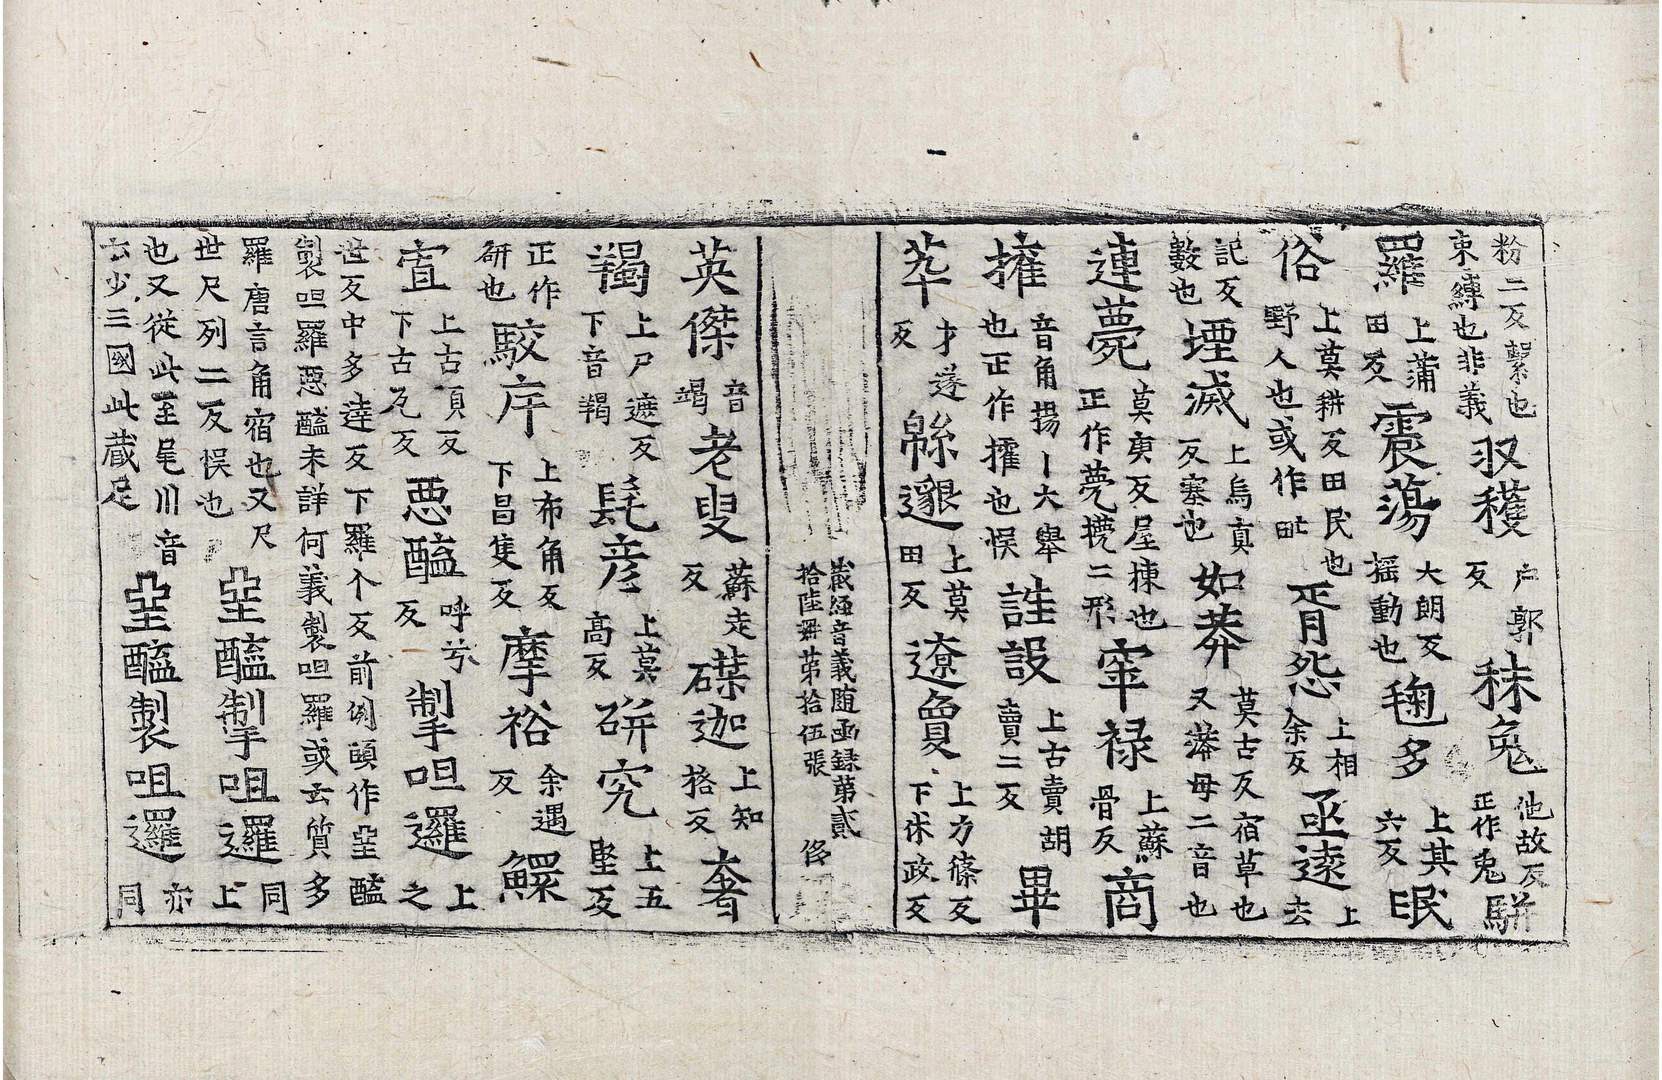 粉二反繫也束縛也非義収穫户郭反秣兔他故反正作兔駢
羅上蒲田反震蕩大朗反揺動也毱多上其六反眠
俗上莫耕反田民也野人也或作甿胥怨上相余反亟逺上去
記反數也堙滅上烏真反塞也如莽莫古反宿草也又漭母二音也
連薨莫庚反屋棟也正作甍㼹二形窣禄上蘇骨反商
搉音角揚丨大舉也正作搉也悮詿設上古賣胡賣二反畢
萃才遂反緜邈上莫田反遼敻上力條反下休政反
藏經音義随函録第貳
拾陸冊苐拾伍張 俢
英傑音竭老叟蘇走反磔迦上知格反奢
羯上尸遮反下音羯髦彦上莫高反研究上五堅反
正作研也駮序上布角反下昌隻反摩裕余遇反鰥
宐上古頂反下古瓦反惡醯呼兮反掣呾邏上之
世反中多達反下羅个反前例頤作堊醯
製呾羅惡醯未詳何義製呾羅或云質多
羅唐言角宿也又尺世尺列二反悮也堊醯掣呾邏同上
也又從此至尾川音云少三國此蔵足堊醯製呾邏亦同